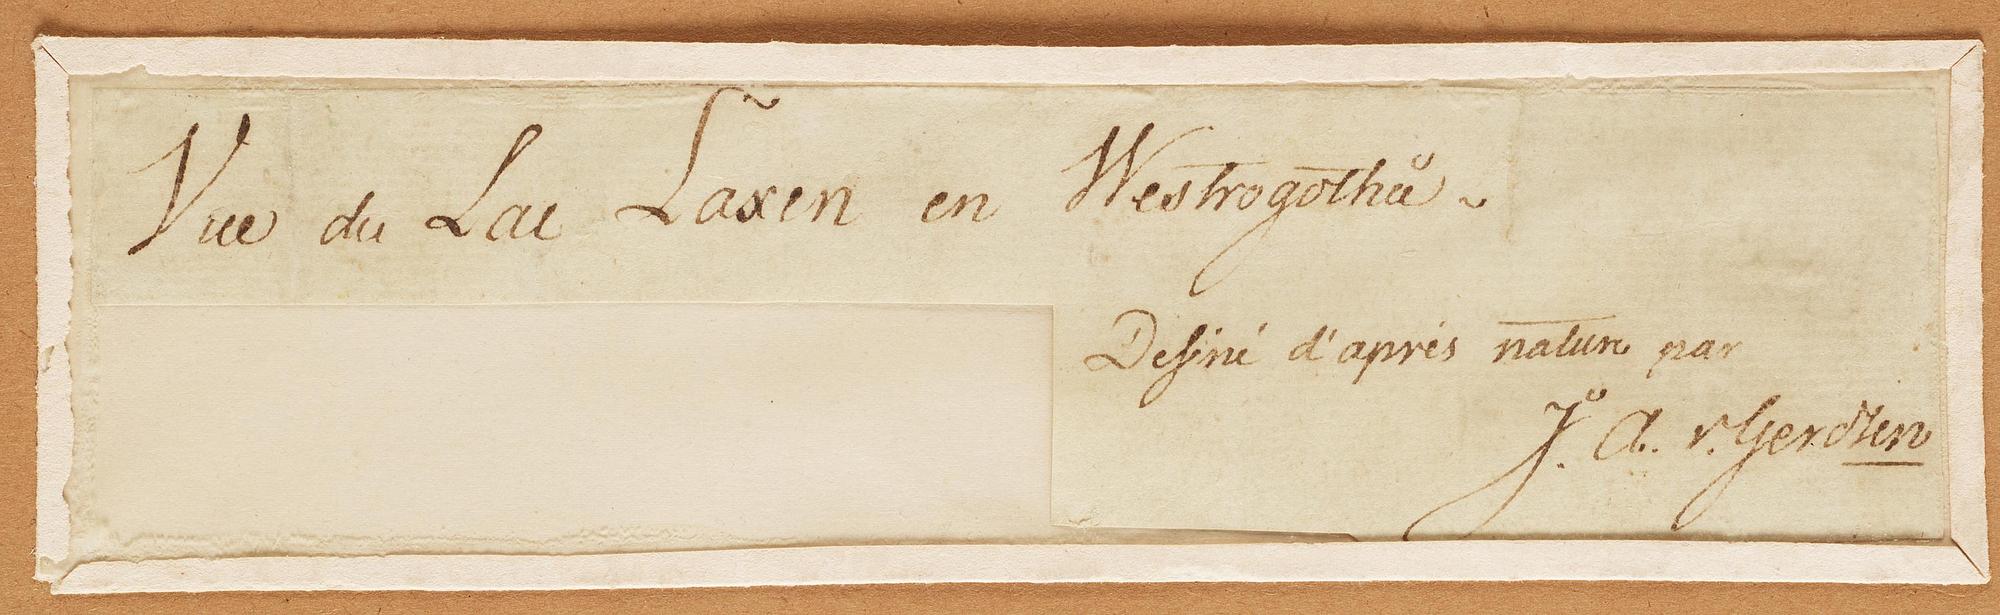 Vue du Lac Laxen en Westrogothie
Desiné d'aprés nature par
J. A. v. Gerdten